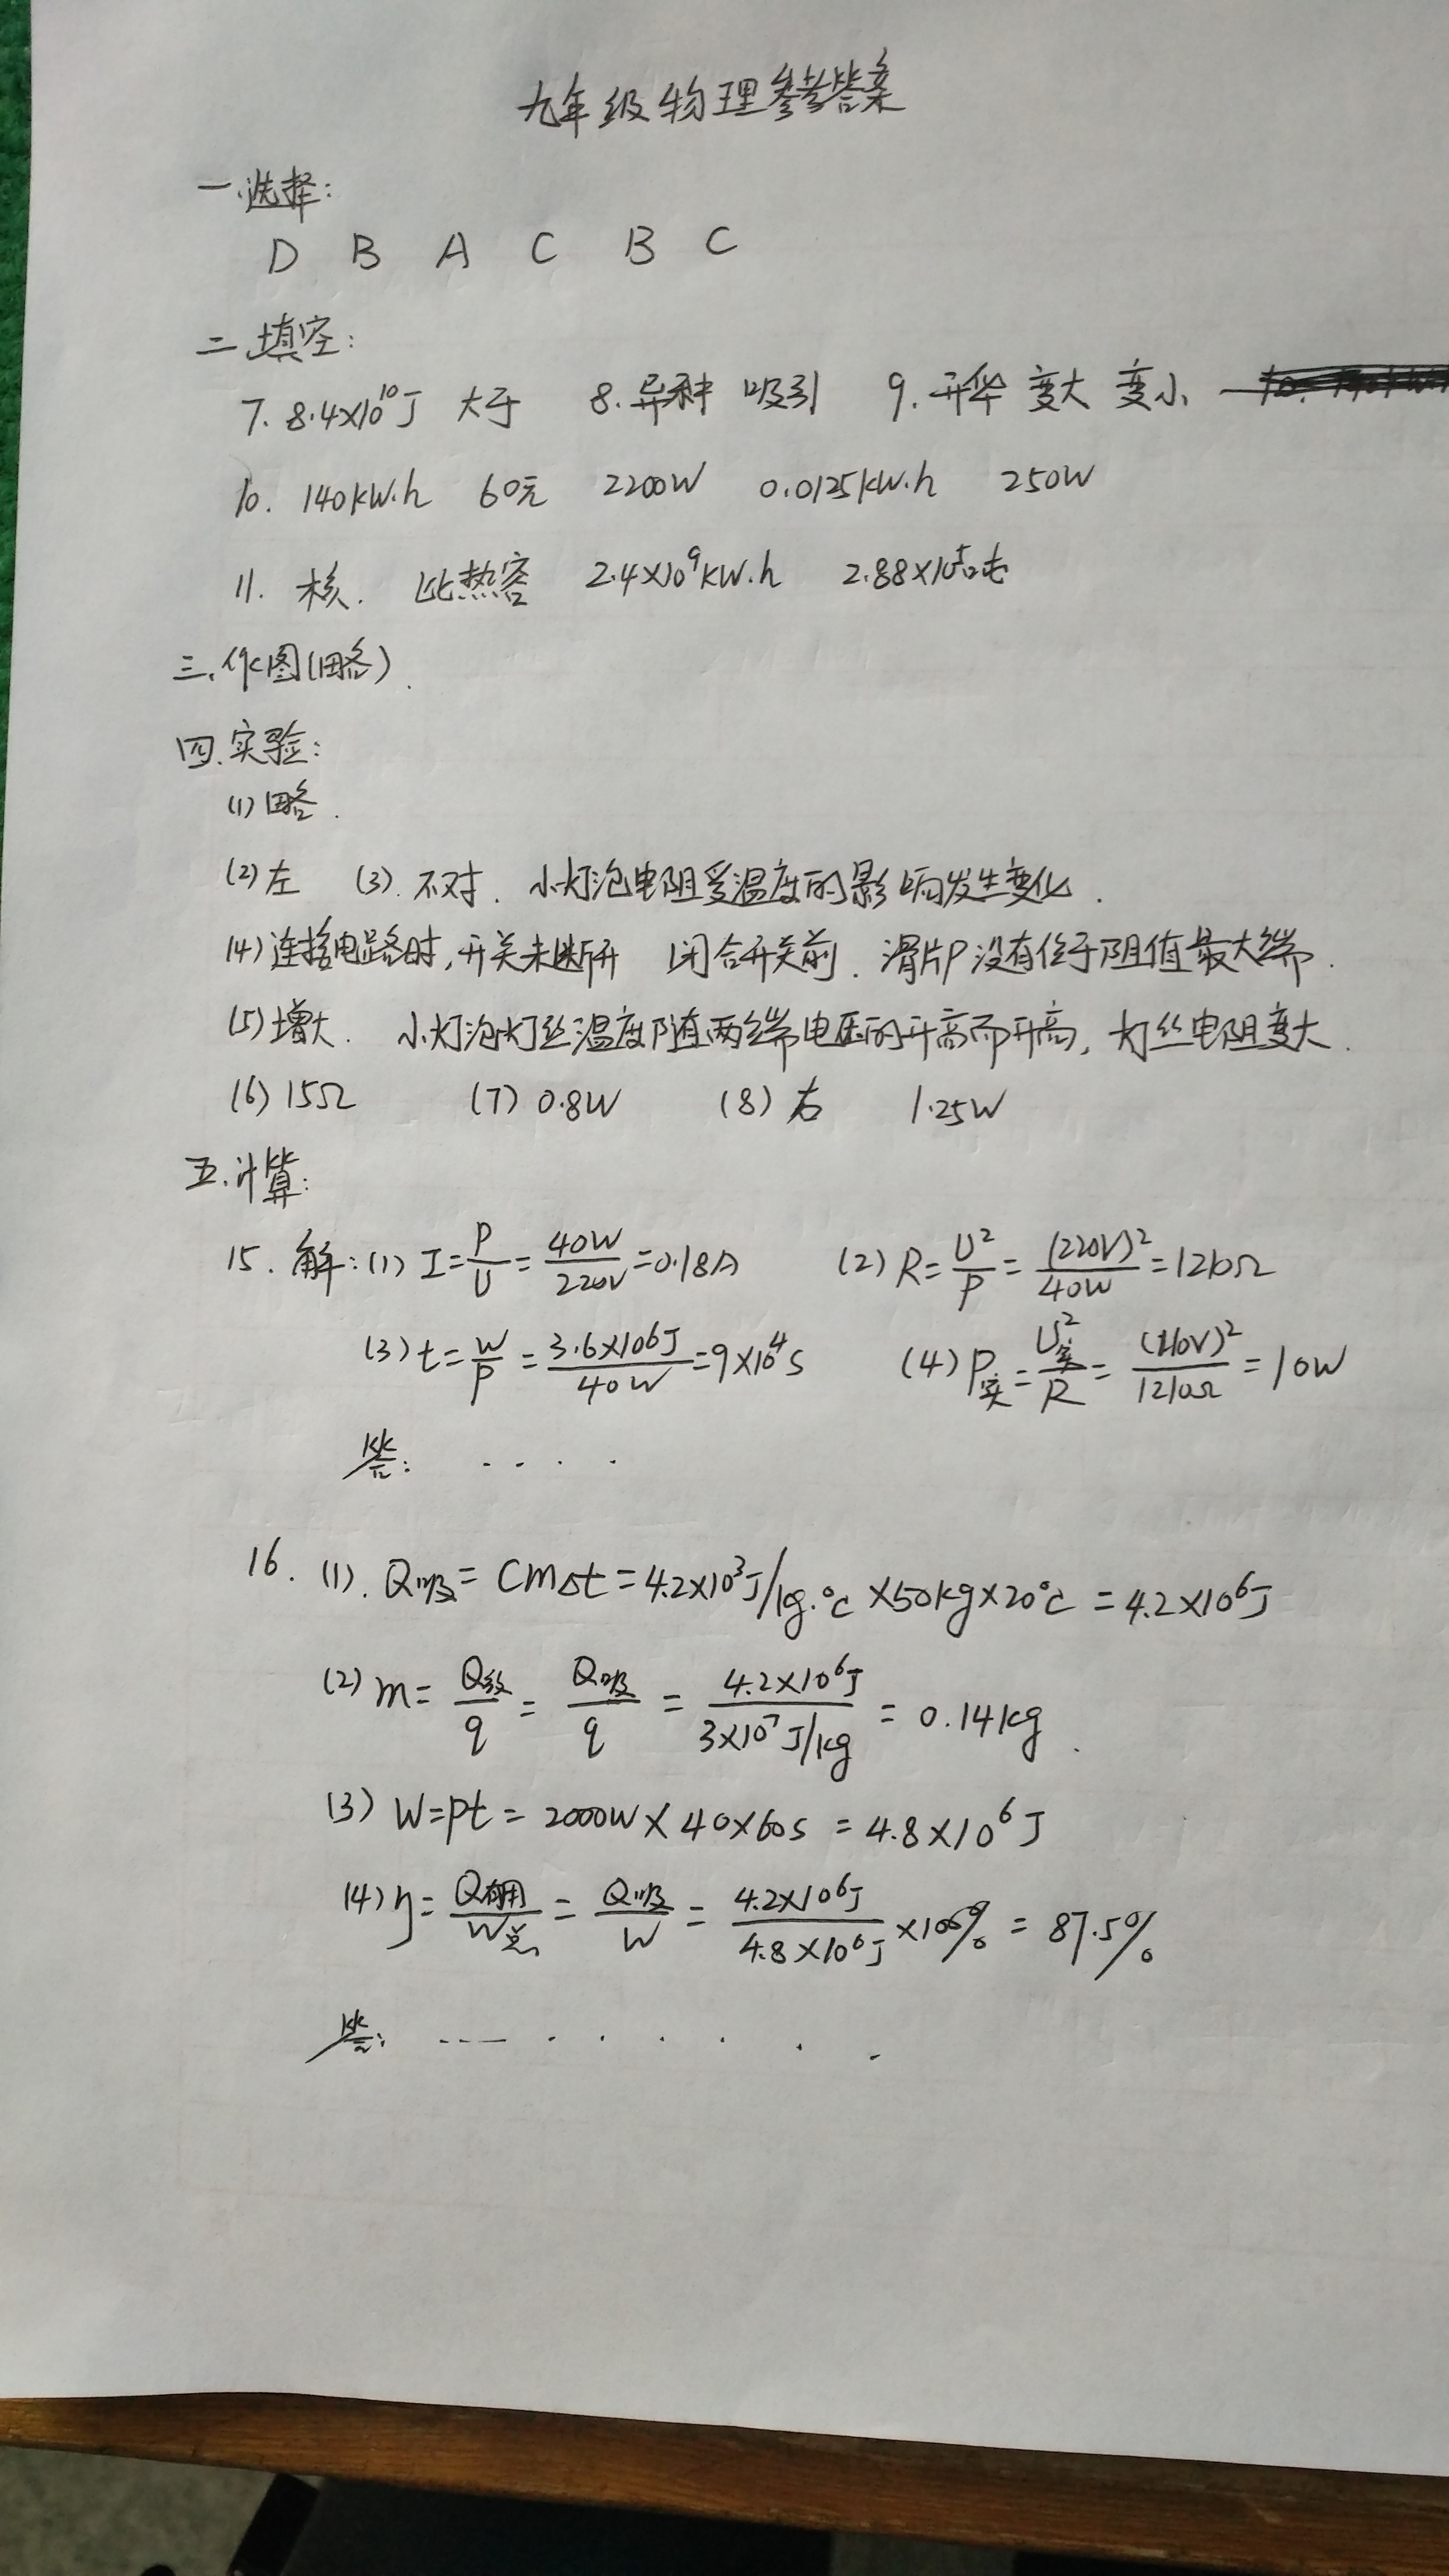 九年级物理参考答案
一.选择:
D B A C B C
二.填空:
7. 8.4×10¹⁰J 大于 8. 异种 吸引 9. 升华 变大 变小
10. 140kW·h 60元 2200W 0.0125kW·h 250W
11. 核. 比热容 2.4×10⁹kW·h 2.88×10⁵吨
三.作图(略).
四.实验:
(1)略.
(2)左 (3).不对. 小灯泡电阻受温度的影响发生变化.
(4)连接电路时,开关未断开 闭合开关前.滑片P没有位于阻值最大端.
(5)增大. 小灯泡灯丝温度随两端电压的升高而升高,灯丝电阻变大.
(6)15Ω (7)0.8W (8)右 1.25W
五.计算:
15.解:(1) I=P/U=40W/220V=0.18A (2) R=U²/P=(220V)²/40W=1210Ω
(3) t=W/P=3.6×10⁶J/40W=9×10⁴s (4) P实=U实²/R=(110V)²/1210Ω=10W
答: ....
16. (1). Q吸=Cm△t=4.2×10³J/kg·℃×50kg×20℃=4.2×10⁶J
(2) m=Q放/q=Q吸/q=4.2×10⁶J/3×10⁷J/kg=0.14kg.
(3) W=Pt=2000W×40×60s=4.8×10⁶J
(4) η=Q有用/W总=Q吸/W=4.2×10⁶J/4.8×10⁶J×100%=87.5%
答: ......